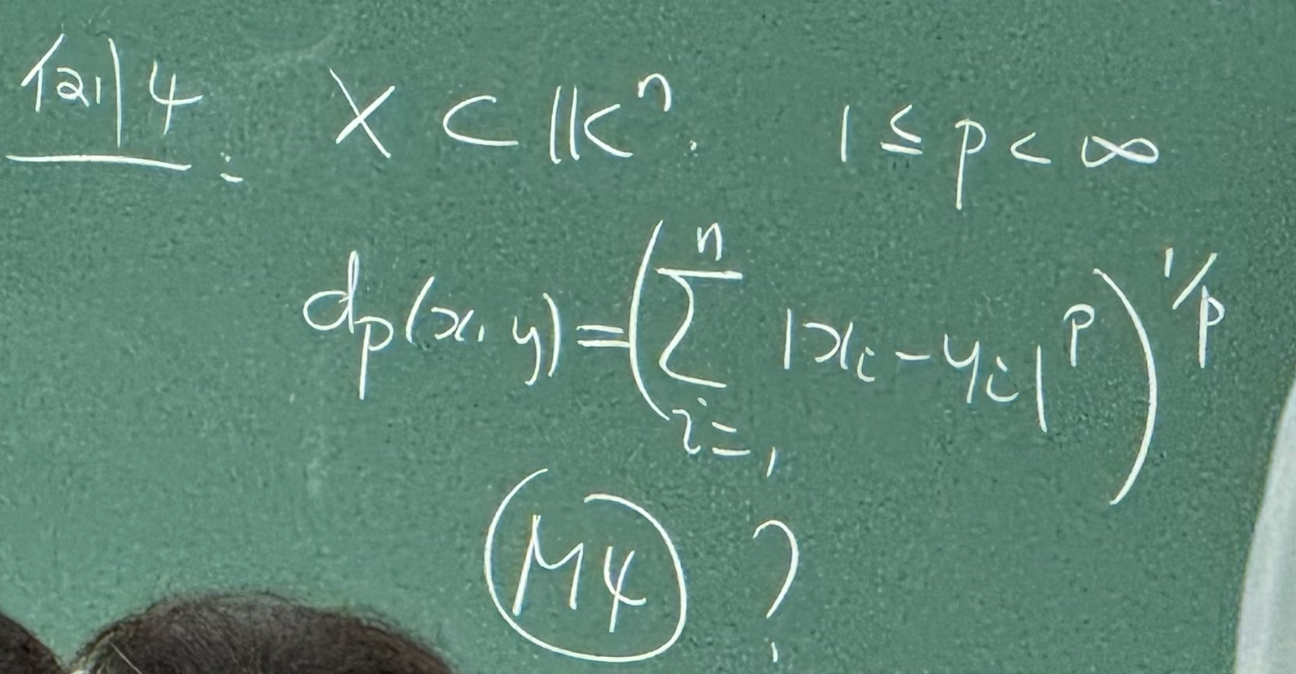 例 4: X ⊂ 𝕂ⁿ. 1 ≤ p < ∞
dₚ(x, y) = (∑ⁿᵢ₌₁ |xᵢ - yᵢ|ᵖ)^{1/p}
M4 ?